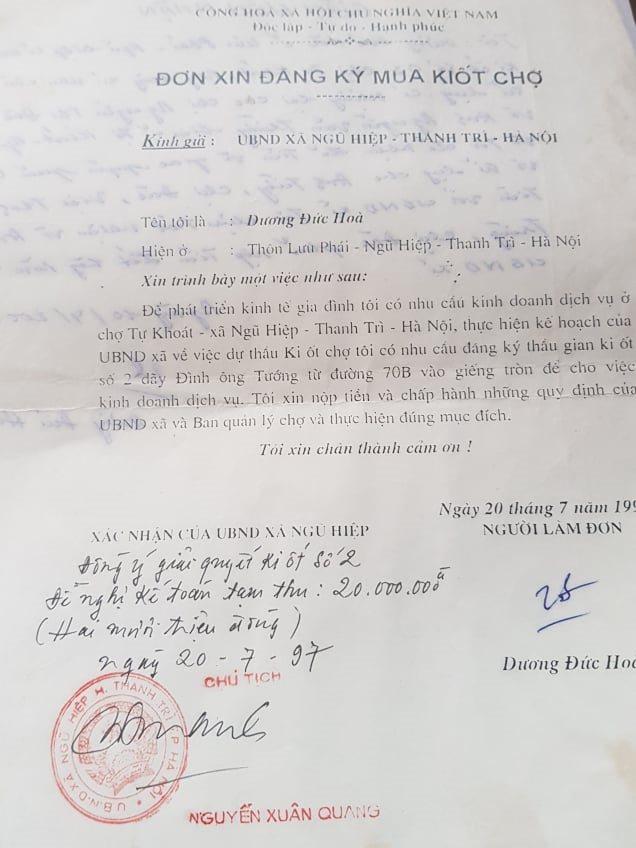 CỘNG HOÀ XÃ HỘI CHỦ NGHĨA VIỆT NAM
Độc lập - Tự do - Hạnh phúc
ĐƠN XIN ĐĂNG KÝ MUA KIỐT CHỢ
Kính gửi : UBND XÃ NGŨ HIỆP - THANH TRÌ - HÀ NỘI
Tên tôi là : Dương Đức Hoà
Hiện ở : Thôn Lưu Phái - Ngũ Hiệp - Thanh Trì - Hà Nội
Xin trình bày một việc như sau:
Để phát triển kinh tế gia đình tôi có nhu cầu kinh doanh dịch vụ ở
chợ Tự Khoát - xã Ngũ Hiệp - Thanh Trì - Hà Nội, thực hiện kế hoạch của
UBND xã về việc dự thầu Ki ốt chợ tôi có nhu cầu đăng ký thầu gian ki ốt
số 2 dãy Đình ông Tướng từ đường 70B vào giếng tròn để cho việc
kinh doanh dịch vụ. Tôi xin nộp tiền và chấp hành những quy định của
UBND xã và Ban quản lý chợ và thực hiện đúng mục đích.
Tôi xin chân thành cảm ơn !
Ngày 20 tháng 7 năm 199
XÁC NHẬN CỦA UBND XÃ NGŨ HIỆP
NGƯỜI LÀM ĐƠN
Đồng ý giải quyết Ki ốt số 2
Đề nghị Kế toán tạm thu : 20.000.000đ
(Hai mươi triệu đồng)
ngày 20 - 7 - 97
CHỦ TỊCH
Dương Đức Hoà
U.B.N.D XÃ NGŨ HIỆP H. THANH TRÌ TP HÀ NỘI
NGUYỄN XUÂN QUANG